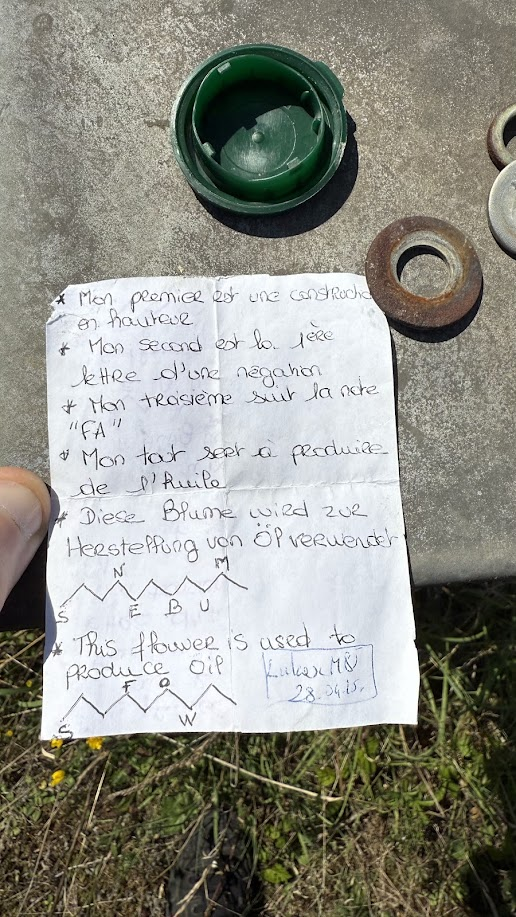 * Mon premier est une constructio
en hauteur
* Mon second est la 1ère
lettre d'une négation
* Mon troisième suit la note
"FA"
* Mon tout sert à produire
de l'huile
* Diese Blume wird zur
Herstellung von Öl verwendet
N M
S E B U
* This flower is used to
produce oil
F O
S W